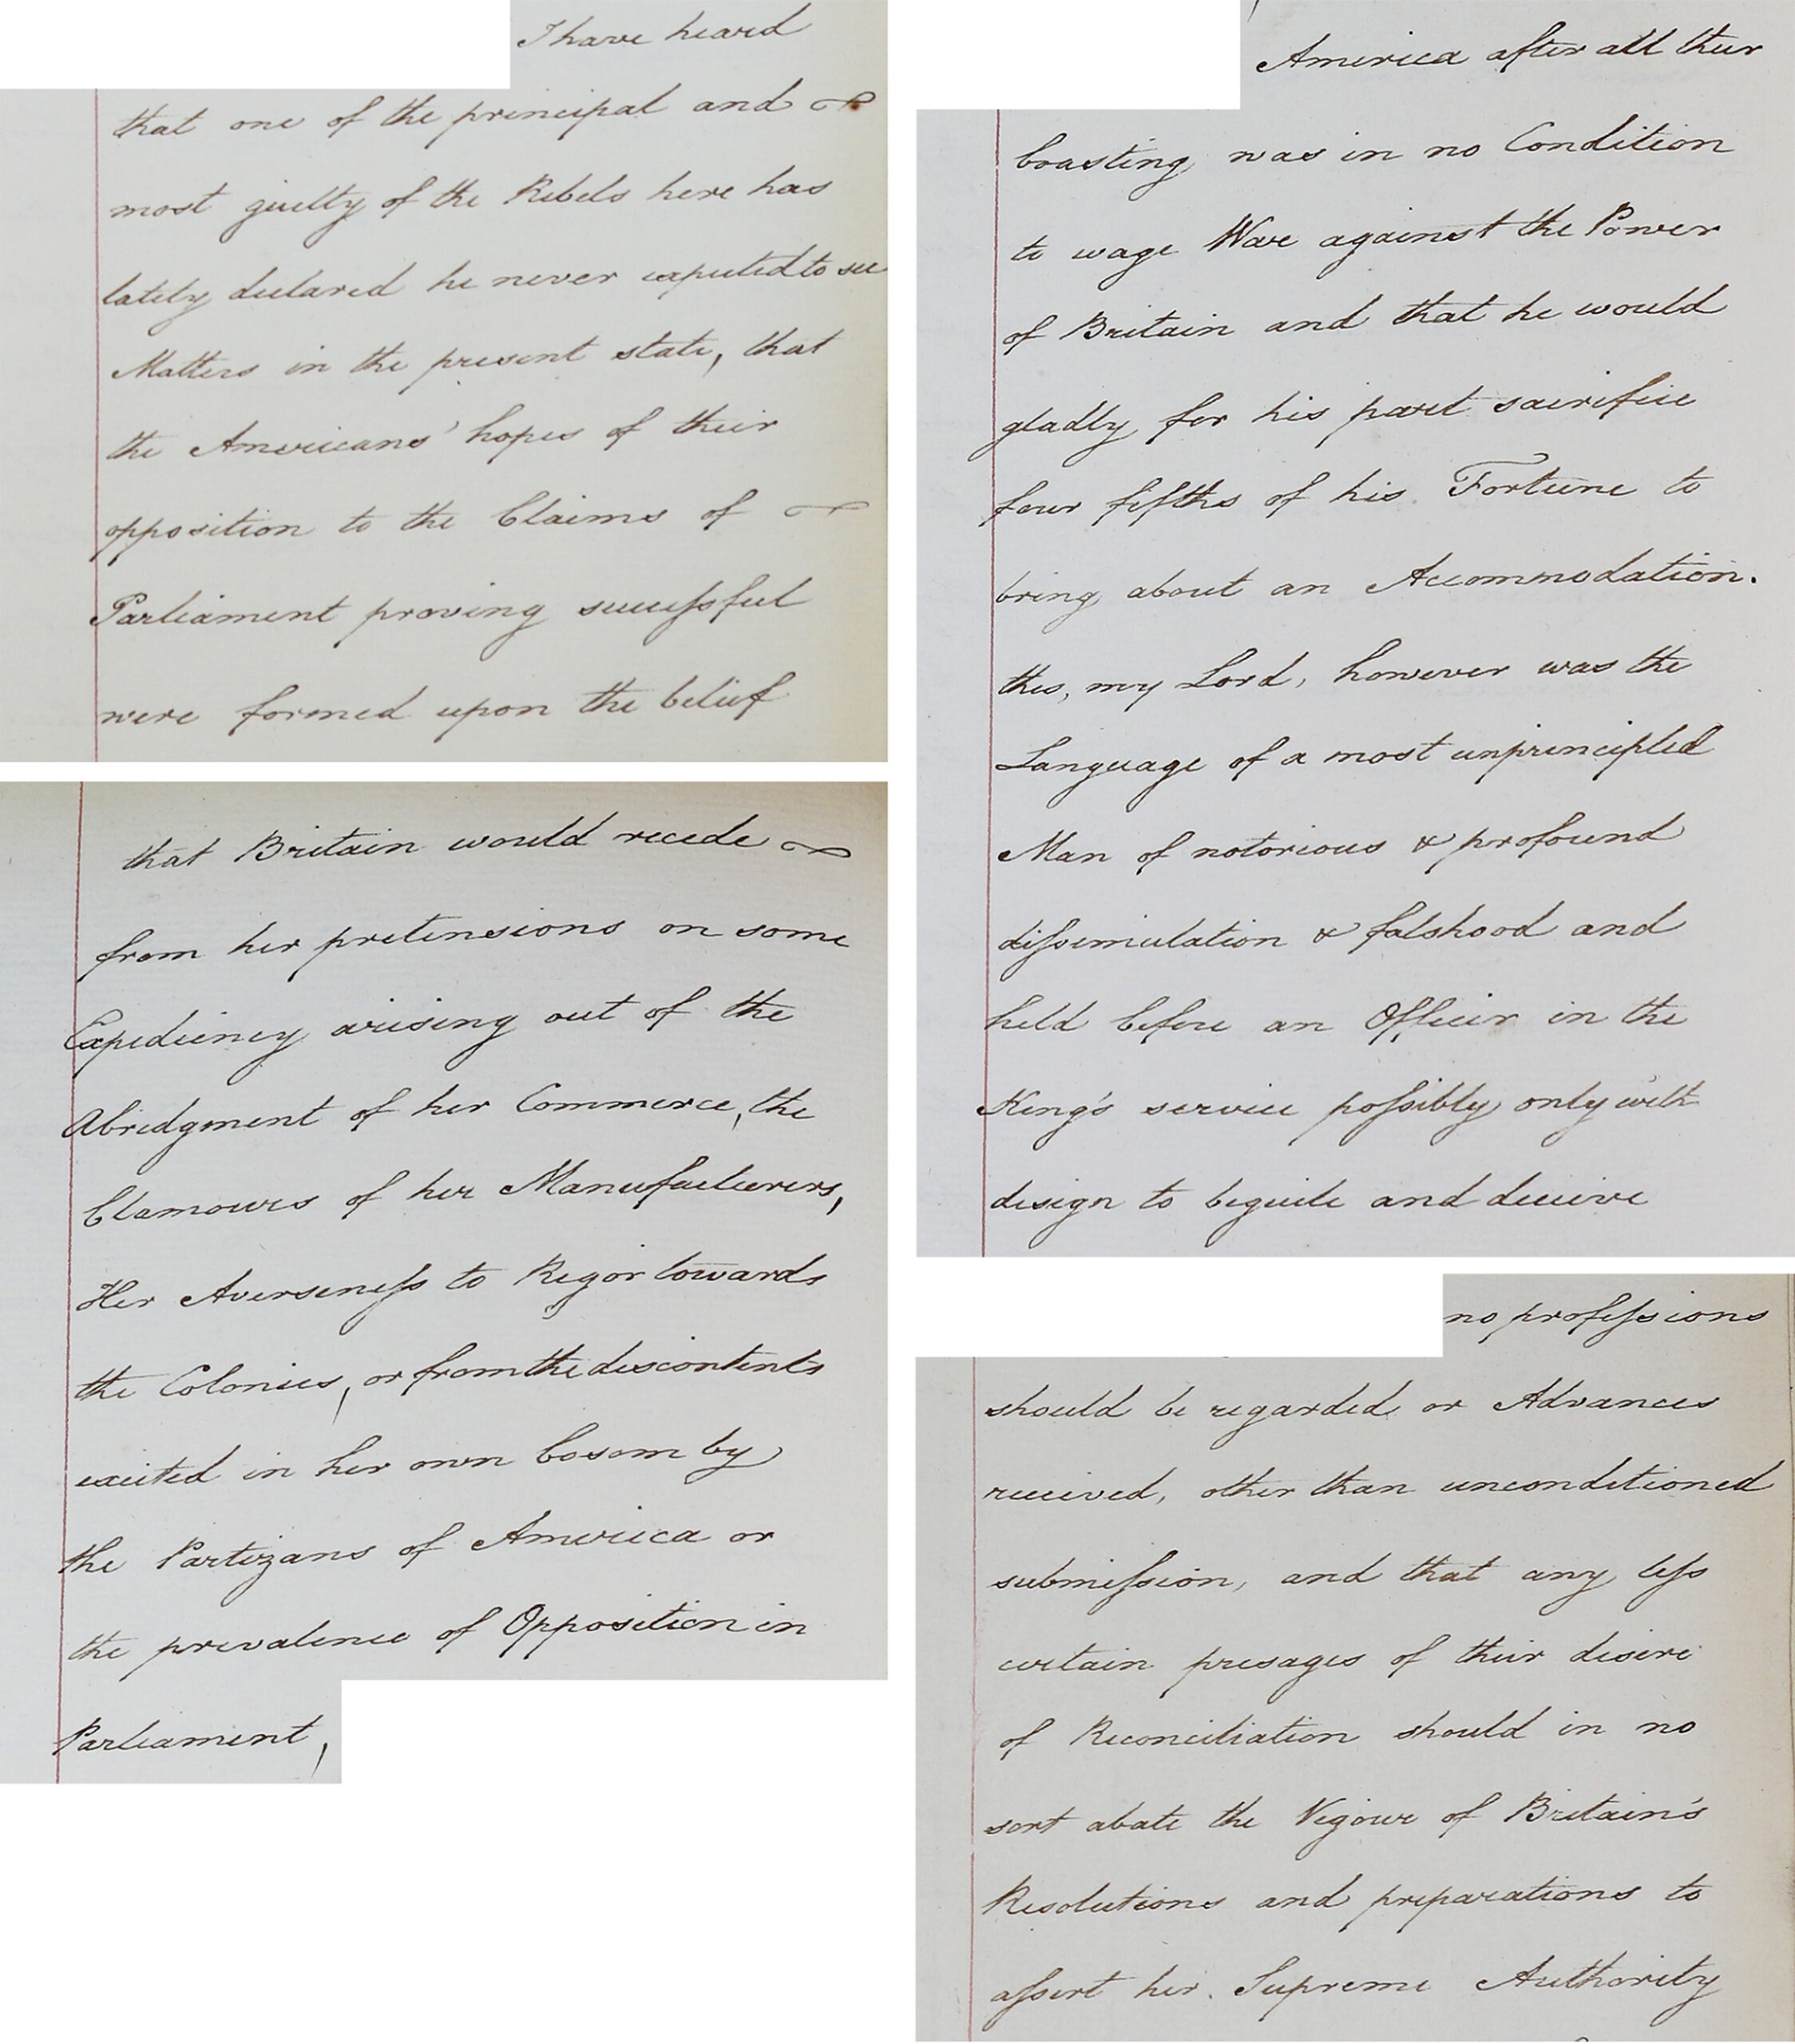 I have heard
that one of the principal and
most guilty of the Rebels here has
lately declared he never expected to see
Matters in the present state, that
the Americans' hopes of their
opposition to the Claims of
Parliament proving successful
were formed upon the belief
that Britain would recede
from her pretensions on some
Expediency arising out of the
Abridgment of her Commerce, the
Clamours of her Manufacturers,
Her Averseness to Rigor towards
the Colonies, or from the discontents
excited in her own bosom by
the Partizans of America or
the prevalence of Opposition in
Parliament,
America after all their
boasting was in no Condition
to wage War against the Power
of Britain and that he would
gladly for his part sacrifice
four fifths of his Fortune to
bring about an Accommodation.
this, my Lord, however was the
Language of a most unprincipled
Man of notorious & profound
dissimulation & falshood and
held before an Officer in the
King's service possibly only with
design to beguile and deceive
no professions
should be regarded or Advances
received, other than unconditioned
submission, and that any less
certain presages of their desire
of Reconciliation should in no
sort abate the Vigour of Britain's
Resolutions and preparations to
assert her Supreme Authority